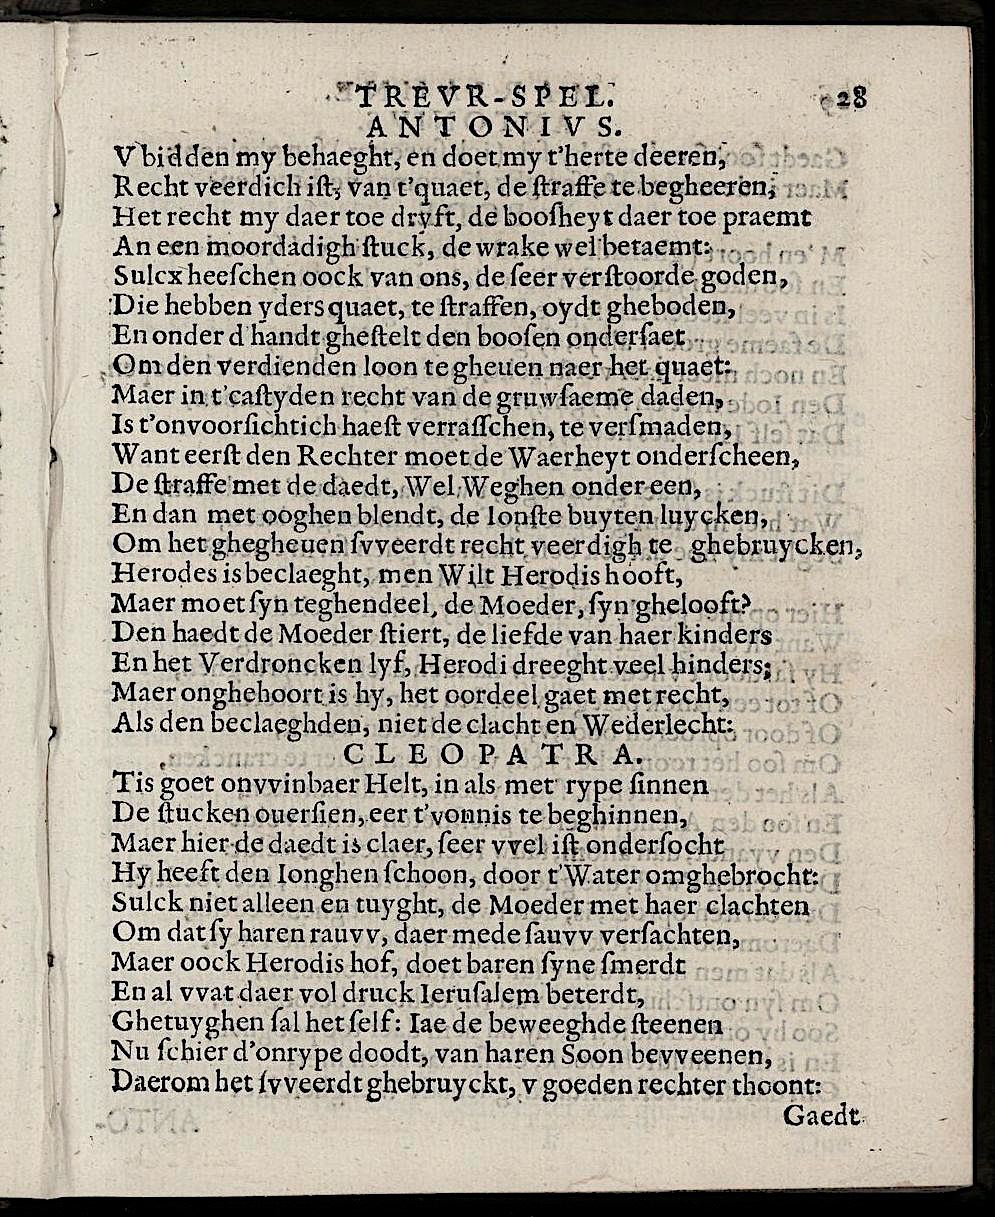 TREVR-SPEL. 28
ANTONIVS.
V bidden my behaeght, en doet my t'herte deeren,
Recht veerdich iſt, van t'quaet, de ſtraffe te begheeren;
Het recht my daer toe dryft, de booſheyt daer toe praemt
An een moordadigh ſtuck, de wrake wel betaemt:
Sulcx heeſchen oock van ons, de ſeer verſtoorde goden,
Die hebben yders quaet, te ſtraffen, oydt gheboden,
En onder d'handt gheſtelt den booſen onderſaet
Om den verdienden loon te gheuen naer het quaet:
Maer in t'caſtyden recht van de gruwſaeme daden,
Is t'onvoorſichtich haeſt verraſſchen, te verſmaden,
Want eerſt den Rechter moet de Waerheyt onderſcheen,
De ſtraffe met de daedt, Wel Weghen onder een,
En dan met ooghen blendt, de Ionſte buyten luycken,
Om het ghegheuen ſvveerdt recht veerdigh te ghebruycken,
Herodes is beclaeght, men Wilt Herodis hooft,
Maer moet ſyn teghendeel, de Moeder, ſyn ghelooft?
Den haedt de Moeder ſtiert, de liefde van haer kinders
En het Verdroncken lyf, Herodi dreeght veel hinders;
Maer onghehoort is hy, het oordeel gaet met recht,
Als den beclaeghden, niet de clacht en Wederlecht:
CLEOPATRA.
Tis goet onvvinbaer Helt, in als met rype ſinnen
De ſtucken ouerſien, eer t'vonnis te beghinnen,
Maer hier de daedt is claer, ſeer vvel iſt onderſocht
Hy heeft den Ionghen ſchoon, door t'Water omghebrocht:
Sulck niet alleen en tuyght, de Moeder met haer clachten
Om dat ſy haren rauvv, daer mede ſauvv verſachten,
Maer oock Herodis hof, doet baren ſyne ſmerdt
En al vvat daer vol druck Ieruſalem beterdt,
Ghetuyghen ſal het ſelf: Iae de beweeghde ſteenen
Nu ſchier d'onrype doodt, van haren Soon bevveenen,
Daerom het ſvveerdt ghebruyckt, v goeden rechter thoont:
Gaedt